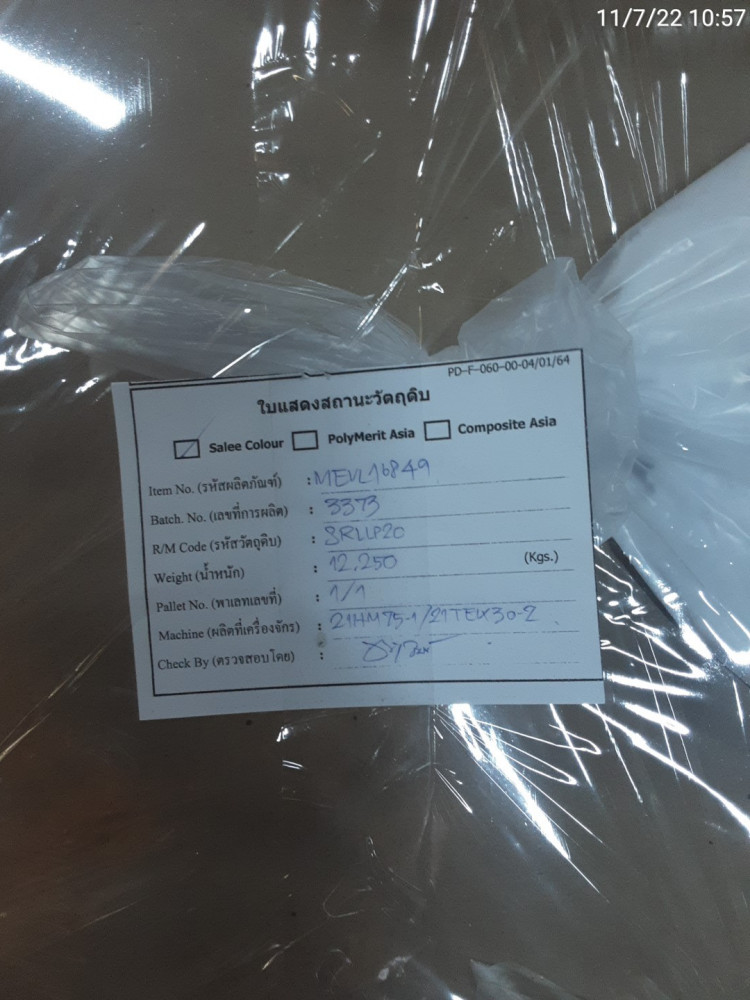 11/7/22 10:57
PD-F-060-00-04/01/64
ใบแสดงสถานะวัตถุดิบ
Salee Colour PolyMerit Asia Composite Asia
Item No. (รหัสผลิตภัณฑ์) : MEVL16849
Batch. No. (เลขที่การผลิต) : 3373
R/M Code (รหัสวัตถุดิบ) : SRLLP20
Weight (น้ำหนัก) : 12.250 (Kgs.)
Pallet No. (พาเลทเลขที่) : 1/1
Machine (ผลิตที่เครื่องจักร) : 21HM75-1/21TEX30-2
Check By (ตรวจสอบโดย) :